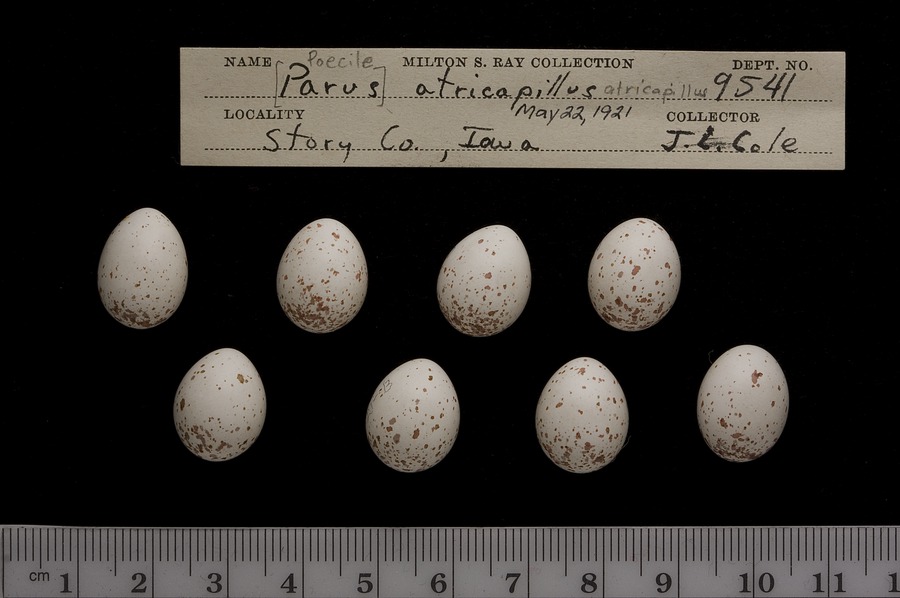 NAME [Parus] Poecile atricapillus atricapillus
MILTON S. RAY COLLECTION
DEPT. NO. 9541
May 22, 1921
LOCALITY Story Co., Iowa
COLLECTOR J. C. Cole
B
cm 1 2 3 4 5 6 7 8 9 10 11 1